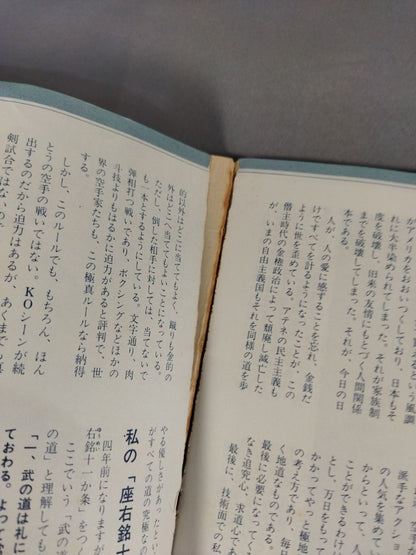 アメリカをおおいつくしており、日本もそ
れに大きく染められてしまった。それが家族制
度を破壊し、旧来の友情にもとづく人間関係
までを破壊してしまった。それが、今日の日
本である。
人が、人の愛に感ずることを忘れ、金銭だ
けですべてを計るようになったことが、この
ように世を歪めている。アテネの民主主義も
僭主時代の金権政治によって類廃し滅亡した
が、いまの自由主義国もそれを同様の道を歩
派手なアクショ
の人気を集めて
からといって、
ことができるわけ
とし、万日をもっ
かかってやっと極地
の考え方であり、毎
く地道なものである。
最後に必要になってく
なき追究心、求道心であ
最後に、技術面での私
的以外はどこに当ててもよく、蹴りも金的の
外はどこに当ててもよいことになっている。
ただし、倒した相手に対しては、当てないで
も一本とするようにしている。文字通り、肉
弾相打つ戦いであり、ボクシングなどほかの
斗技よりもはるかに迫力があると評判で、世
界の空手家たちも、この極真ルールなら納得
する。
しかし、このルールでも、もちろん、ほん
とうの空手の戦いではない。KOシーンが続
出するのだから迫力はあるが、あくまでも真
剣試合ではないので
やる優しさがあったとい
がすべての道の究極なの
私の「座右銘十
四年前になりますが
右銘十一か条」をつ
ここでいう「武の
の道」と理解しても
「一、武の道は礼に
ておわる。よって